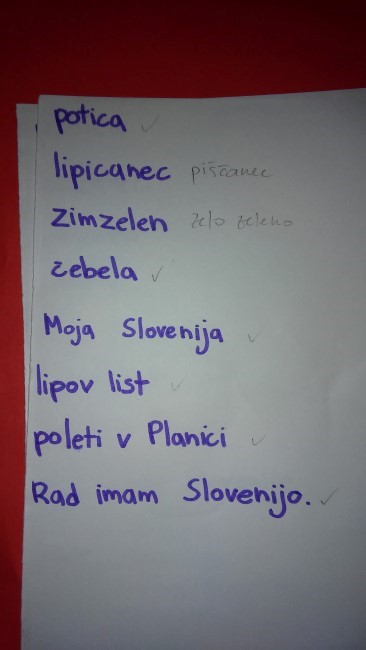 potica ✓
lipicanec piščanec
zimzelen zelo zeleno
čebela ✓
Moja Slovenija ✓
lipov list ✓
poleti v Planici ✓
Rad imam Slovenijo. ✓